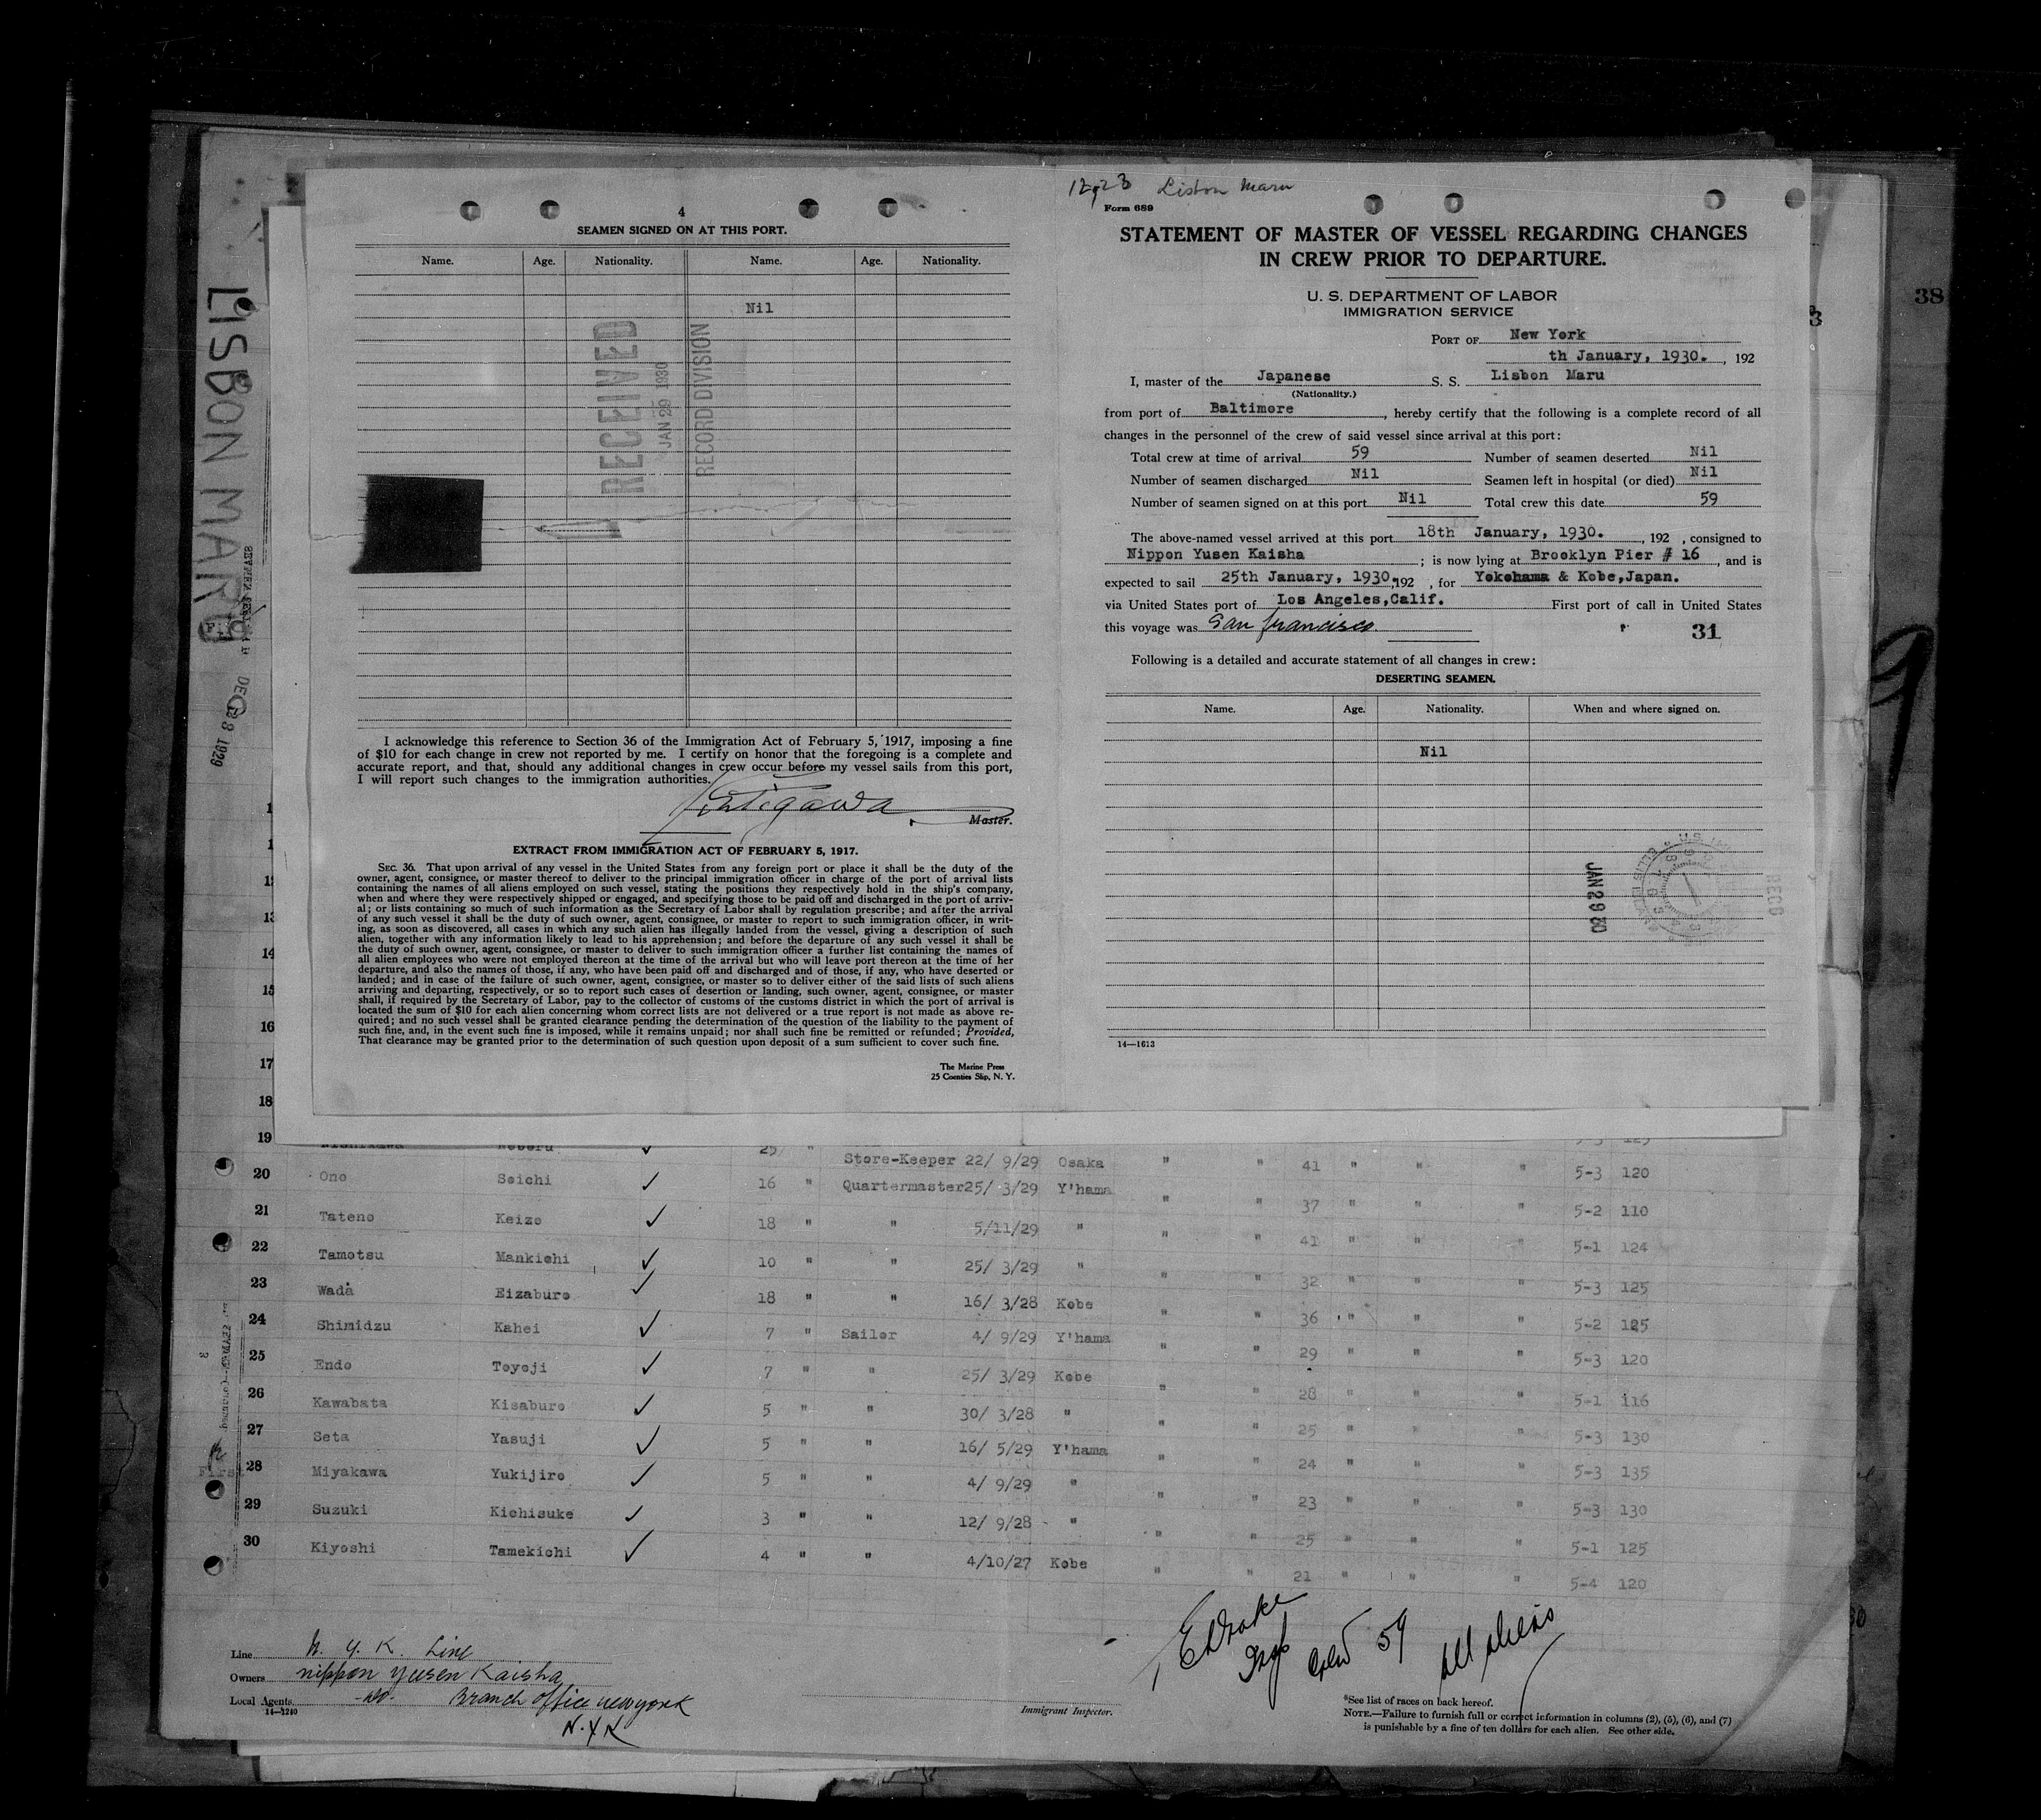 LISBON MARU
DEC 23 1929
38
4
SEAMEN SIGNED ON AT THIS PORT.
Name. Age. Nationality. Name. Age. Nationality.
Nil
RECEIVED
JAN 29 1930
RECORD DIVISION
I acknowledge this reference to Section 36 of the Immigration Act of February 5, 1917, imposing a fine
of $10 for each change in crew not reported by me. I certify on honor that the foregoing is a complete and
accurate report, and that, should any additional changes in crew occur before my vessel sails from this port,
I will report such changes to the immigration authorities.
Master.
EXTRACT FROM IMMIGRATION ACT OF FEBRUARY 5, 1917.
SEC. 36. That upon arrival of any vessel in the United States from any foreign port or place it shall be the duty of the
owner, agent, consignee, or master thereof to deliver to the principal immigration officer in charge of the port of arrival lists
containing the names of all aliens employed on such vessel, stating the positions they respectively hold in the ship's company,
when and where they were respectively shipped or engaged, and specifying those to be paid off and discharged in the port of arriv-
al; or lists containing so much of such information as the Secretary of Labor shall by regulation prescribe; and after the arrival
of any such vessel it shall be the duty of such owner, agent, consignee, or master to report to such immigration officer, in writ-
ing, as soon as discovered, all cases in which any such alien has illegally landed from the vessel, giving a description of such
alien, together with any information likely to lead to his apprehension; and before the departure of any such vessel it shall be
the duty of such owner, agent, consignee, or master to deliver to such immigration officer a further list containing the names of
all alien employees who were not employed thereon at the time of the arrival but who will leave port thereon at the time of her
departure, and also the names of those, if any, who have been paid off and discharged and of those, if any, who have deserted or
landed; and in case of the failure of such owner, agent, consignee, or master so to deliver either of the said lists of such aliens
arriving and departing, respectively, or so to report such cases of desertion or landing, such owner, agent, consignee, or master
shall, if required by the Secretary of Labor, pay to the collector of customs of the customs district in which the port of arrival is
located the sum of $10 for each alien concerning whom correct lists are not delivered or a true report is not made as above re-
quired; and no such vessel shall be granted clearance pending the determination of the question of the liability to the payment of
such fine, and, in the event such fine is imposed, while it remains unpaid; nor shall such fine be remitted or refunded; Provided,
That clearance may be granted prior to the determination of such question upon deposit of a sum sufficient to cover such fine.
The Marine Press
25 Coenties Slip, N. Y.
Lisbon Maru
Form 689
STATEMENT OF MASTER OF VESSEL REGARDING CHANGES
IN CREW PRIOR TO DEPARTURE.
U. S. DEPARTMENT OF LABOR
IMMIGRATION SERVICE
PORT OF New York
th January, 1930. , 192
I, master of the Japanese S. S. Lisbon Maru
(Nationality.)
from port of Baltimore, hereby certify that the following is a complete record of all
changes in the personnel of the crew of said vessel since arrival at this port:
Total crew at time of arrival 59 Number of seamen deserted Nil
Number of seamen discharged Nil Seamen left in hospital (or died) Nil
Number of seamen signed on at this port Nil Total crew this date 59
The above-named vessel arrived at this port 18th January, 1930. , 192 , consigned to
Nippon Yusen Kaisha ; is now lying at Brooklyn Pier # 16 , and is
expected to sail 25th January, 1930, 192 , for Yokohama & Kobe, Japan.
via United States port of Los Angeles, Calif. First port of call in United States
this voyage was San Francisco. 31
Following is a detailed and accurate statement of all changes in crew:
DESERTING SEAMEN.
Name. Age. Nationality. When and where signed on.
Nil
JAN 29 30
RECD
14—1613
13
14
15
16
17
18
19 25 "
20 Ono Seichi ✓ 16 " Store-Keeper 22/ 9/29 Osaka " " 41 " " " 5-3 120
21 Tateno Keizo ✓ 18 " Quartermaster 25/ 3/29 Y'hama " " 37 " " " 5-2 110
22 Tamotsu Mankichi ✓ 10 " " 5/11/29 " " " 41 " " " 5-1 124
23 Wada Eizaburo ✓ 18 " " 25/ 3/29 " " " 32 " " " 5-3 125
24 Shimidzu Kahei ✓ 7 " " 16/ 3/28 Kobe " " 36 " " " 5-2 125
25 Endo Toyoji ✓ 7 " Sailor 4/ 9/29 Y'hama " " 29 " " " 5-3 120
26 Kawabata Kisaburo ✓ 5 " " 25/ 3/29 Kobe " " 28 " " " 5-1 116
27 Seta Yasuji ✓ 5 " " 30/ 3/28 " " " 25 " " " 5-3 130
28 Miyakawa Yukijiro ✓ 5 " " 16/ 5/29 Y'hama " " 24 " " " 5-3 135
29 Suzuki Kichisuke ✓ 3 " " 4/ 9/29 " " " 23 " " " 5-3 130
30 Kiyoshi Tamekichi ✓ 4 " " 12/ 9/28 " " " 25 " " " 5-1 125
4/10/27 Kobe " " 21 " " " 5-4 120
Crew 59 all aliens
Line N. Y. K. Line
Owners Nippon Yusen Kaisha
Local Agents -do- Branch office New York
14—1240
N.Y.K
Immigrant Inspector.
*See list of races on back hereof.
NOTE.—Failure to furnish full or correct information in columns (2), (5), (6), and (7)
is punishable by a fine of ten dollars for each alien. See other side.